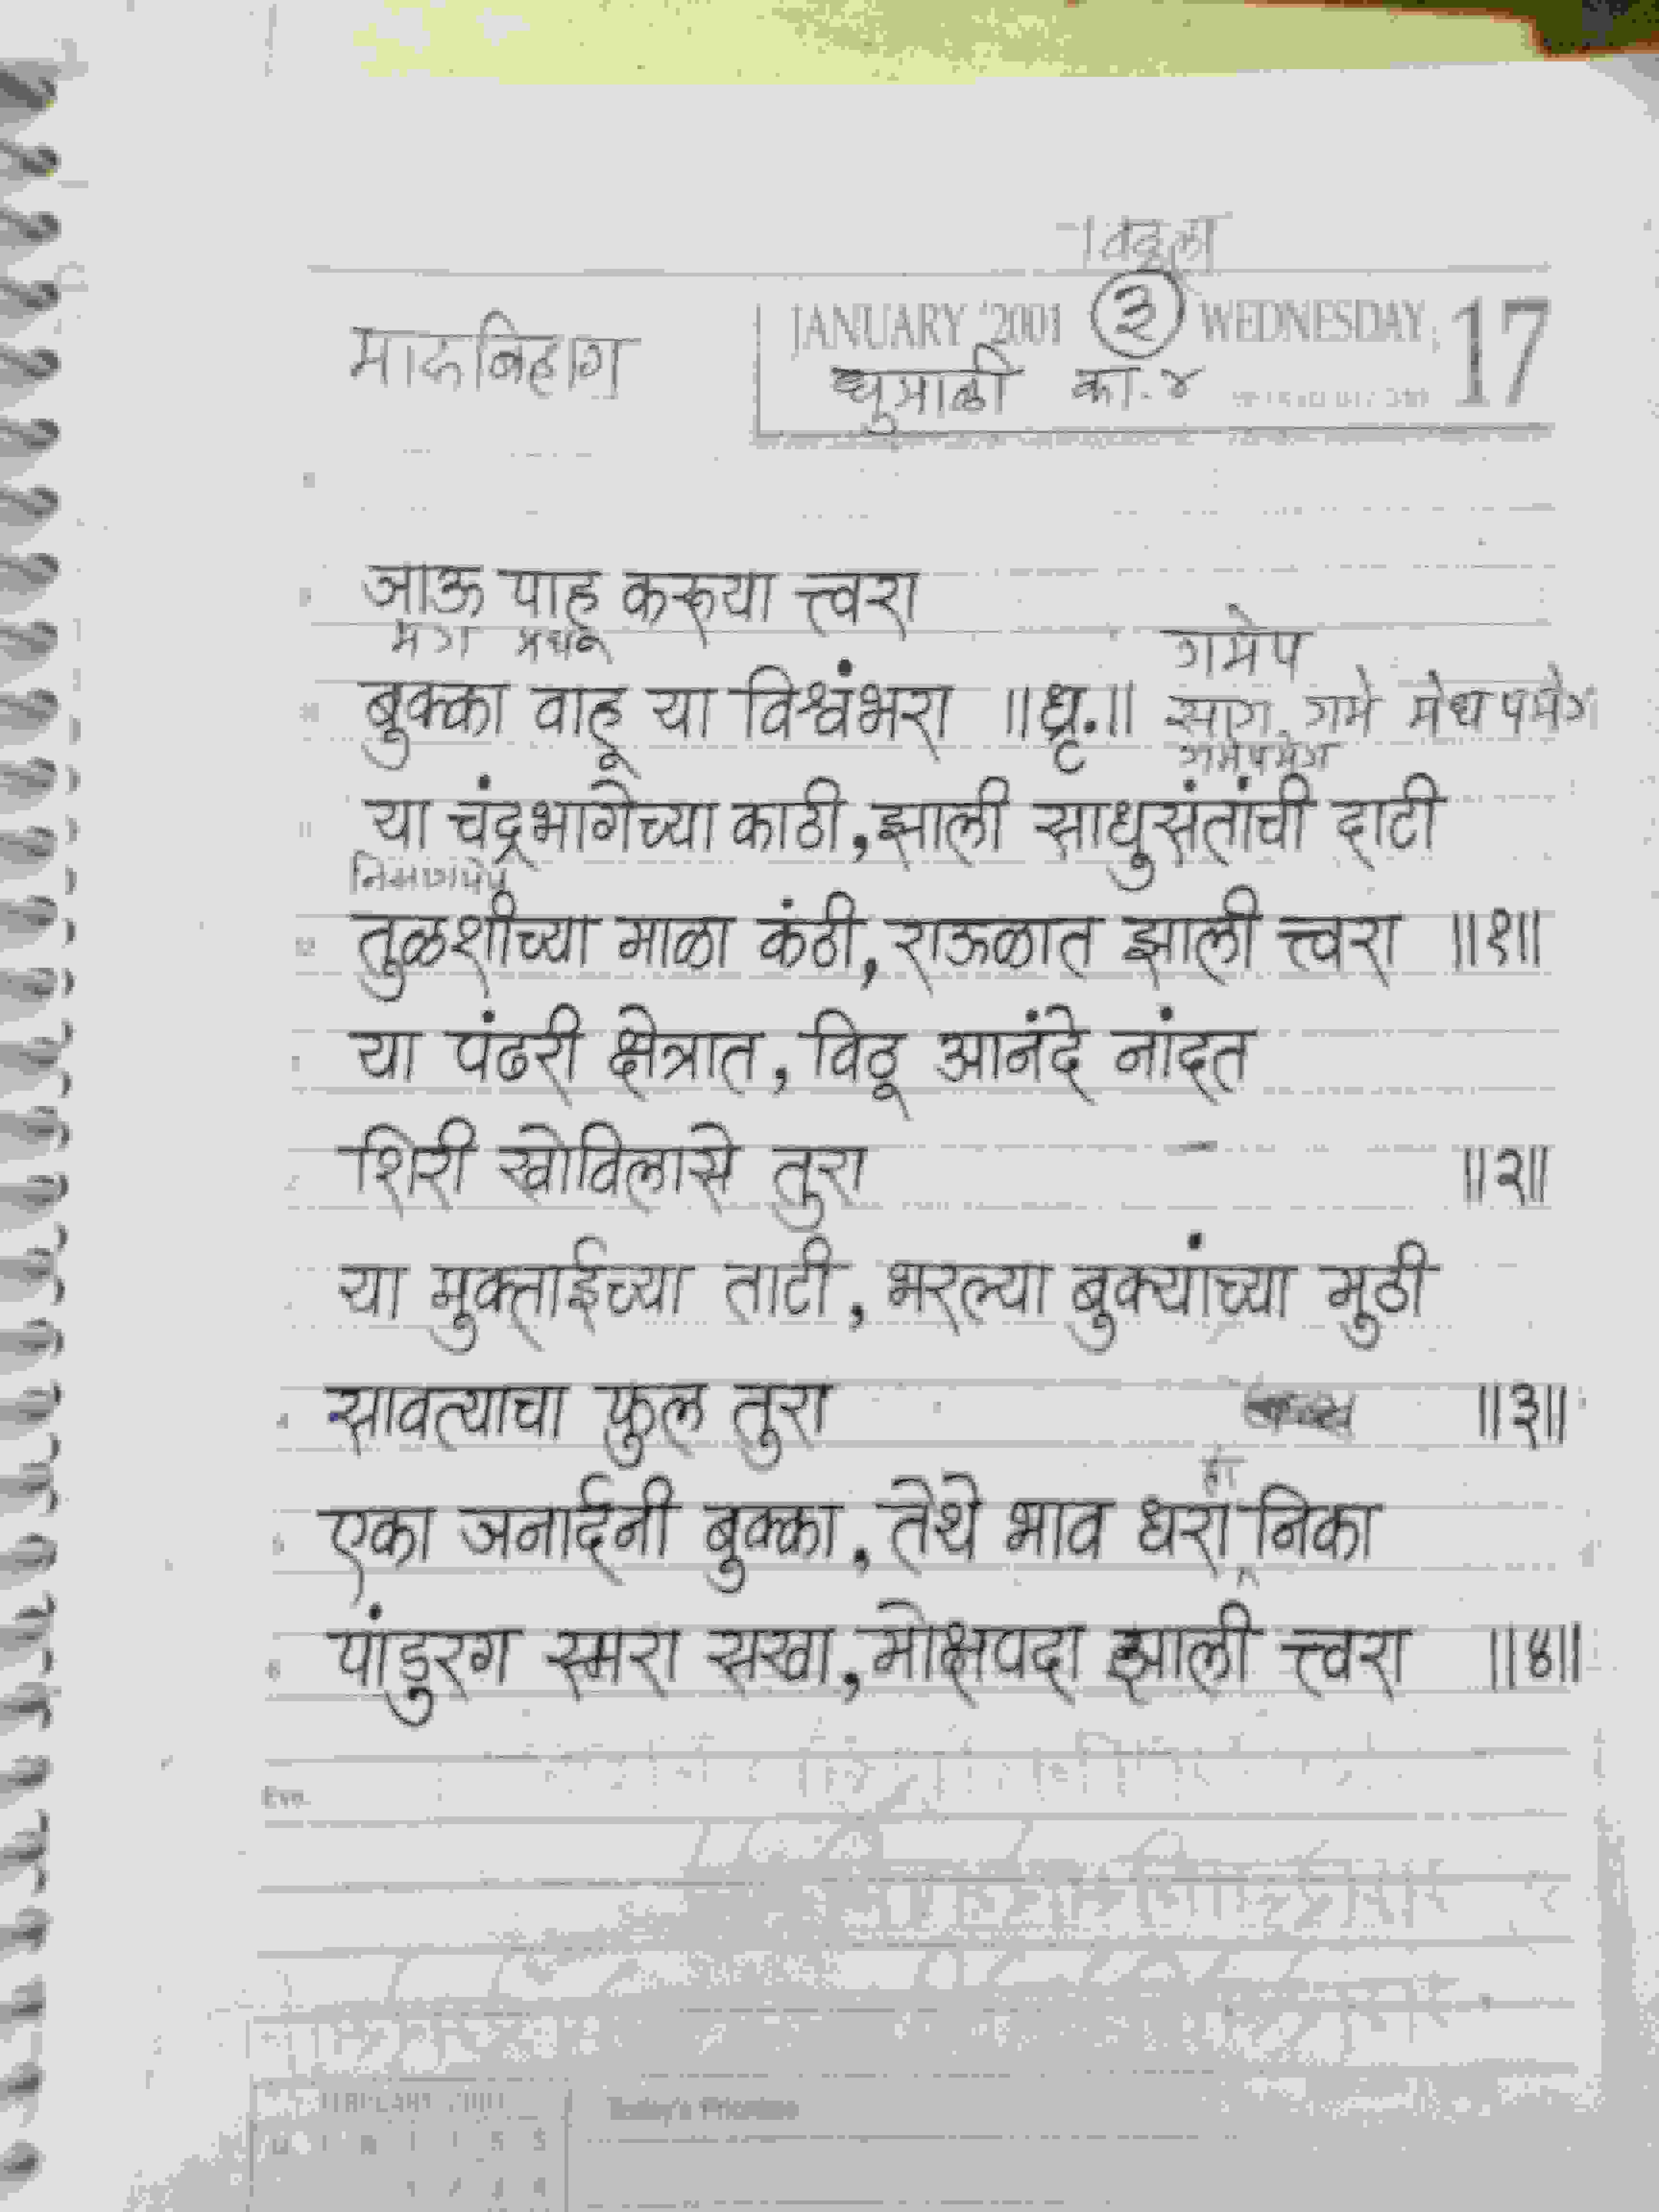 विठ्ठला
JANUARY '2001 ३ WEDNESDAY 17
मारूबिहाग
धुमाळी का. ४
जाऊ पाहू करूया त्त्वरा
मग
गमेप
बुक्का वाहू या विश्वंभरा ॥धृ.॥ साग गमे मेध पमेग
गमेपमेग
या चंद्रभागेच्या काठी, झाली साधुसंतांची दाटी
तुळशीच्या माळा कंठी, राऊळात झाली त्त्वरा ॥१॥
या पंढरी क्षेत्रात, विठू आनंदे नांदत
शिरी खोविलासे तुरा ॥२॥
या मुक्ताईच्या ताटी, भरल्या बुक्यांच्या मुठी
सावत्याचा फुल तुरा ॥३॥
एका जनार्दनी बुक्का, तेथे भाव धरा निका
पांडुरग स्मरा सखा, मोक्षपदा झाली त्त्वरा ॥४॥
Eve.
FEBRUARY 2001 Today's Priorities